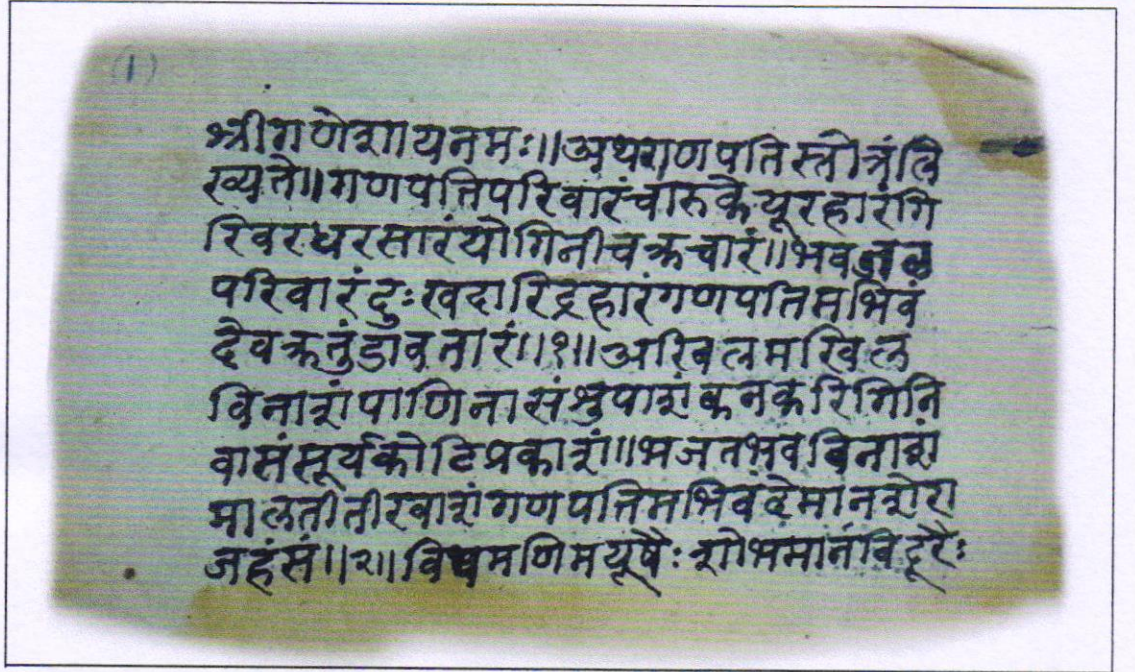 (1)
श्रीगणेशायनमः॥अथगणपतिस्तोत्रंलि
ख्यते॥गणपतिपरिवारंचारुकेयूरहारंगि
रिवरधरसारंयोगिनीचक्रचारं॥भव
परिवारंदुःखदारिद्रहारंगणपतिमभिवं
देवक्रतुंडावतारं॥१॥अखिलमखिल
विनाशंपाणिनासंश्रुपाशंकनकगिरिनि
वासंसूर्यकोटिप्रकाशं॥भजतभवविनाशं
मालतीतीरवाशंगणपतिमभिवंदेमानशेरा
जहंसं॥२॥विधमणिमयूषैःशोभमानंविदूरैः